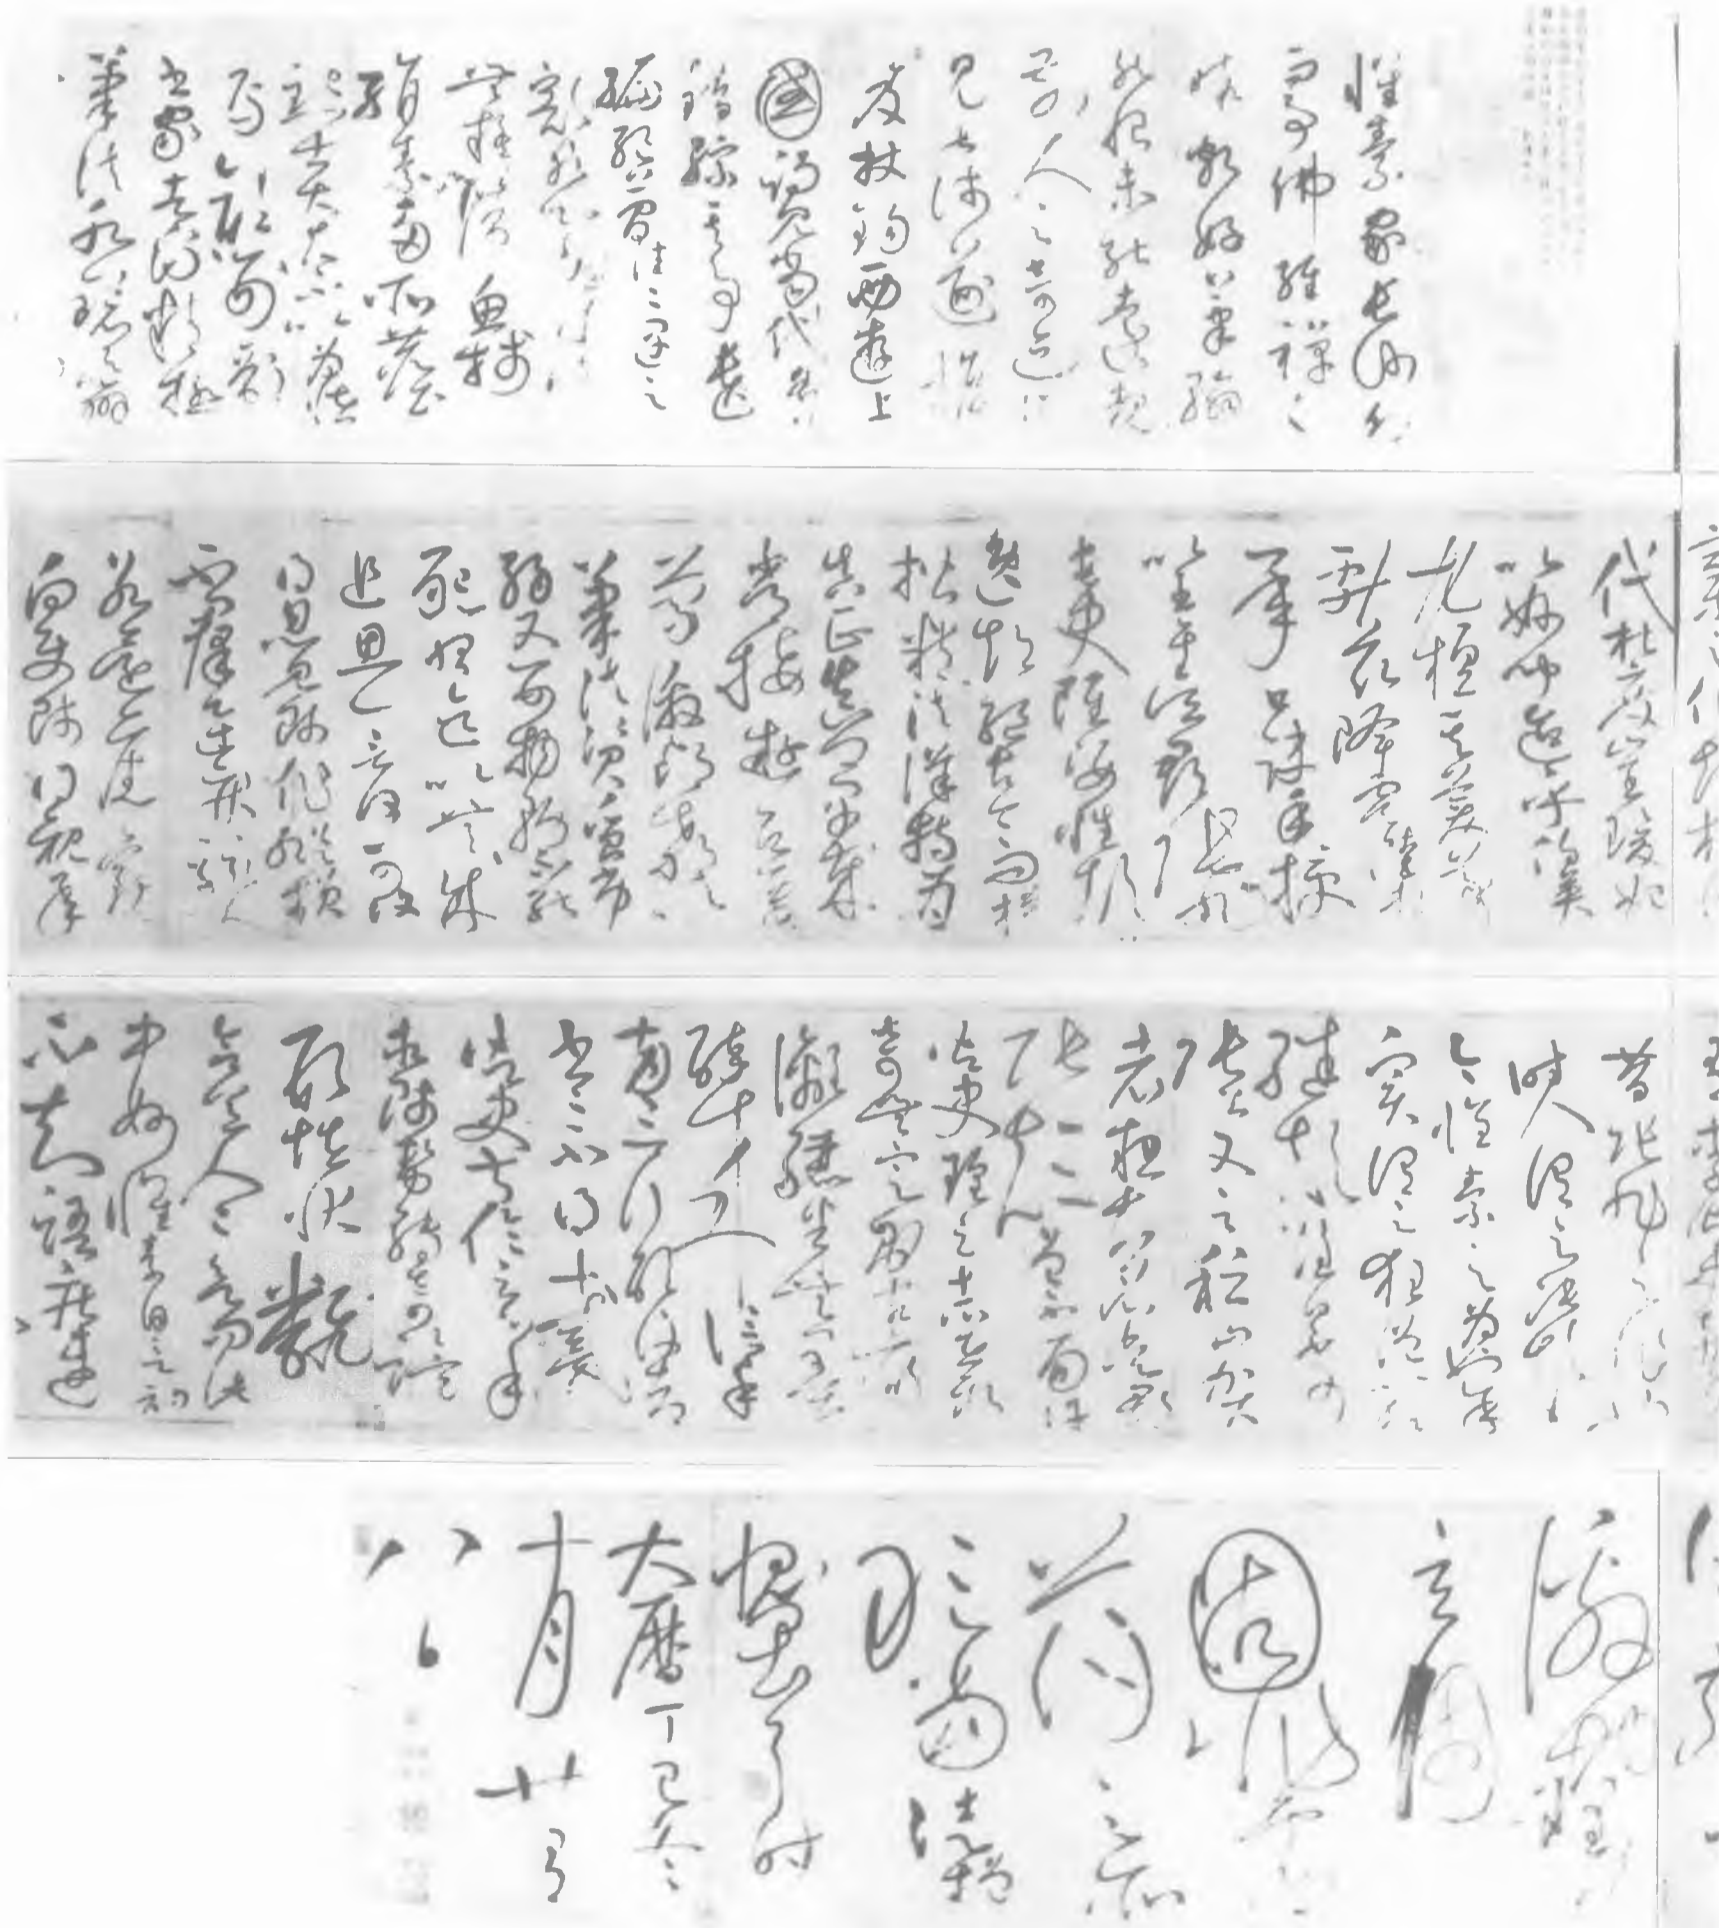 懷素家長沙幼
而事佛經禪之
暇頗好筆翰
然恨未能遠覩
前人之奇迹所
見甚淺遂擔
笈杖錫西遊上
國謁見當代名公
錯綜其事遺
編絕簡往往遇之
豁然心胸略
無疑滯魚牋
絹素多所塵點
士大夫不以為怪
焉顏刑部
書家者流精極
筆法水鏡之辨
代杜度崔瑗始
以妙聞迨乎伯英
尤擅其美羲獻
茲降虞陸相
承口訣手授
以至于吳郡張旭
長史雖姿性顛
逸超絕古今而模
楷精法詳特為
真正真卿早歲
常接遊居屢
蒙激昂教以
筆法資質劣
弱又嬰物務不能
懇習迄以無成
追思一言何可復
得忽見師作縱橫
不群迅疾駭人
若還舊觀
向使師得親承
昔張旭之作也
時人謂之張顛
今懷素之為也余
實謂之狂僧以狂
繼顛誰曰不可
張公又云稽山賀
老粗知名吳郡
張顛曾不面許
御史瑝云志在新
奇無定則古瘦
漓纚半無墨
醉來信手
兩三行醒後卻
書書不得戴
御史叔倫云心手
相師勢轉奇詭
形怪狀翻
合宜人人欲問此
中妙懷素自言初
不知語疾速
激切理識
玄奧
固非虛
蕩之所
敢當徒增
愧畏耳時
大曆丁巳冬
十月廿有
八日